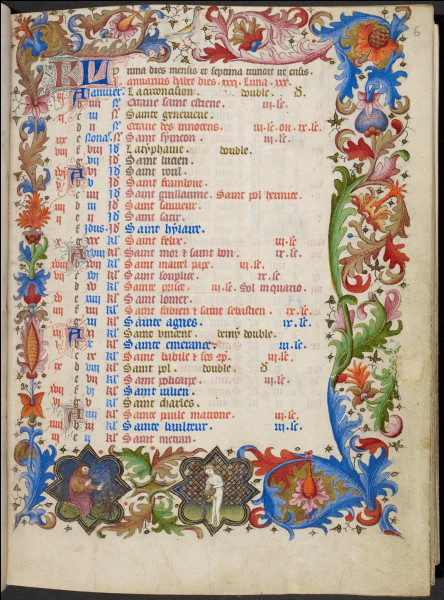 6
KL Prima dies mensis et septima truncat ut ensis
Januarius habet dies .xxxi. Luna .xxx.
A Januier. La circoncision. double.
b iiij N Octaue saint estiene. iij.lc
iij N Sainte geneuieue.
d ij N Octaue des innocens. iij.lc. ou .ix.lc.
e Nonas. Saint symeon iij.lc.
f viij Id La typhane. double.
vij Id Saint lucien.
A vj Id Saint poul.
v Id Saint frambout.
iiij Id Saint guillaume. Saint pol hermite.
iij Id Saint sauueur.
e ij Id Saint satir.
f Idus. Saint hylaire.
xix kl Saint felix. iij.lc
A xviij kl Saint mor & saint bon. ix.lc.
xvij kl Saint marcel pape. iij.lc.
xvj kl Saint souplice. ix.lc.
xv kl Sainte prisce. iij.lc Sol in aquario.
xiiij kl Saint lomer.
xiij kl Saint fabien & saint sebastien. ix.lc.
xij kl Sainte agnes. ix.lc.
A xj kl Saint vincent. demy double.
x kl Sainte emerance. iij.lc
ix kl Saint babile & ses iij.lc
viij kl Saint pol. double.
vij kl Saint policarpe. iij.lc.
vj kl Saint iulien.
v kl Saint charles.
A iiij kl Sainte paule matrone. iij.lc.
iij kl Sainte bauteur. iij.lc.
ij kl Saint metran.